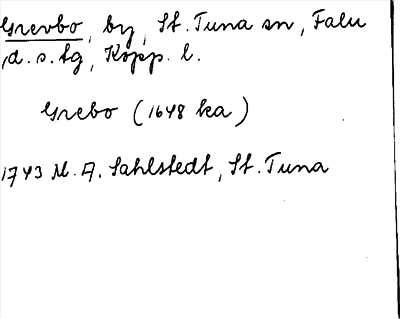 Grevbo, by, St. Tuna sn, Falu
d. s. tg, Kopp. l.
Grebo (1648 ka)
1743 M. A. Sahlstedt, St. Tuna